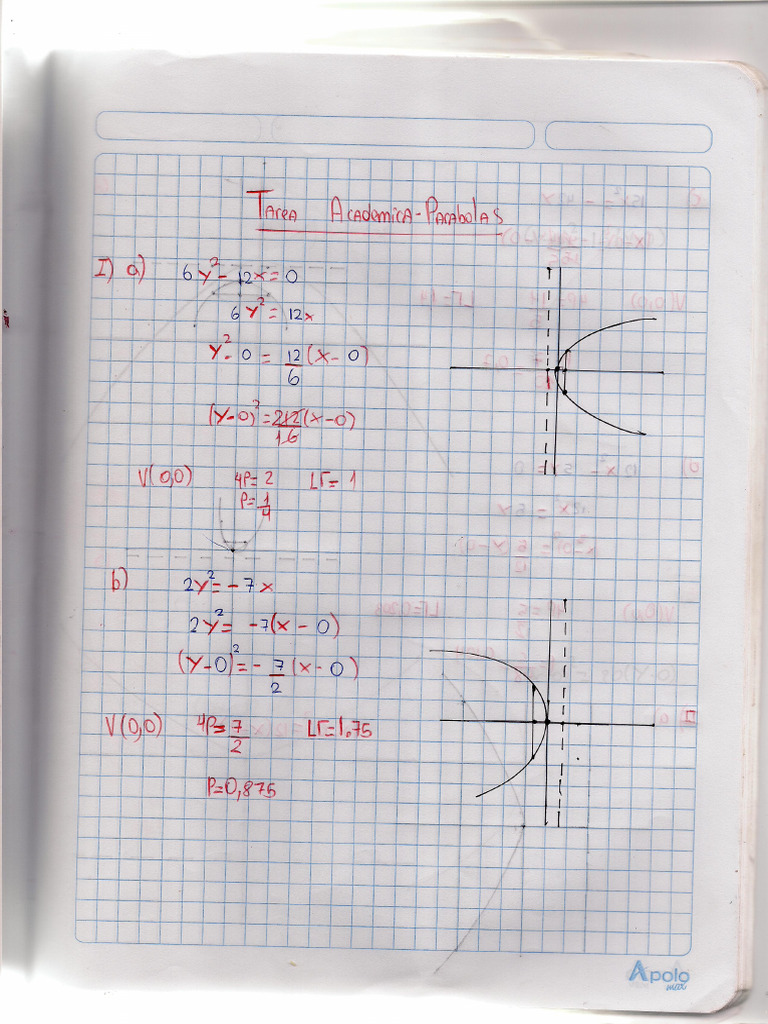 Tarea Academica-Parabolas
I) a) 6y² - 12x = 0
6y² = 12x
y² - 0 = 12/6 (x - 0)
(y-0)² = 212/16 (x-0)
V(0,0) 4P= 2 LΓ= 1
P= 1/4
b) 2y² = -7x
2y² = -7(x - 0)
(y-0)² = -7/2 (x - 0)
V(0,0) 4P= 7/2 LΓ= 1.75
P=0,875
Apolo
max